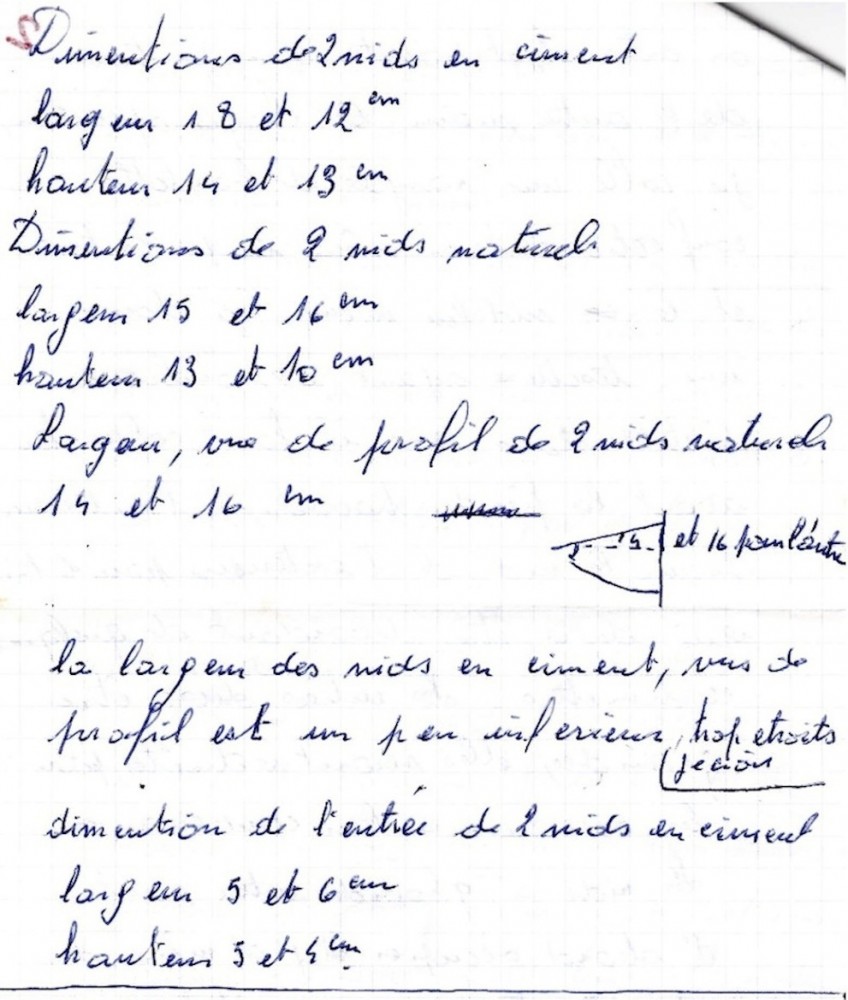 Dimentions de 2 nids en ciment
largeur 18 et 12 cm
hauteur 14 et 13 cm
Dimentions de 2 nids naturels
largeur 15 et 16 cm
hauteur 13 et 10 cm
Largeur, vue de profil de 2 nids naturels
14 et 16 cm
et 16 pour l'autre
la largeur des nids en ciment, vus de
profil est un peu inferieur, trop etroits
je crois
dimention de l'entrée de 2 nids en ciment
largeur 5 et 6 cm
hauteur et cm